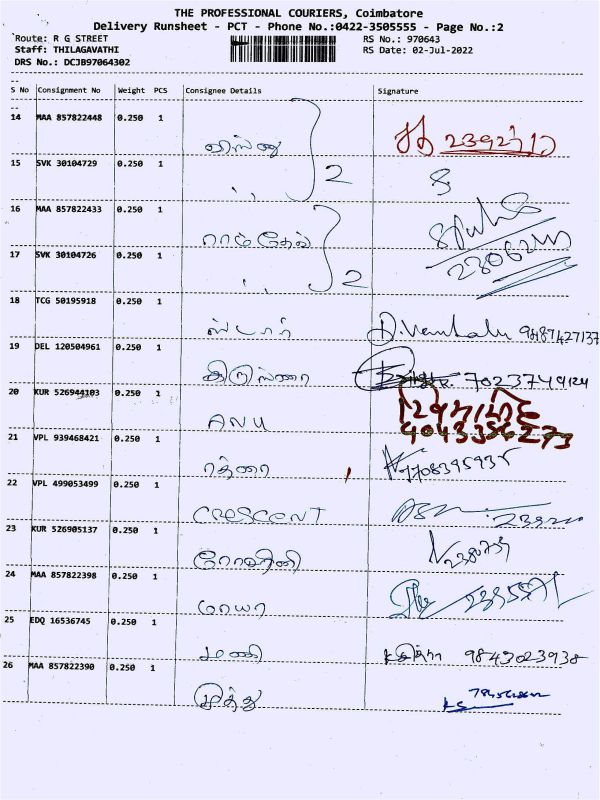 THE PROFESSIONAL COURIERS, Coimbatore
Delivery Runsheet - PCT - Phone No.:0422-3505555 - Page No.:2
Route: R G STREET RS No.: 970643
Staff: THILAGAVATHI RS Date: 02-Jul-2022
DRS No.: DCJB97064302
S No Consignment No Weight PCS Consignee Details Signature
14 MAA 857822448 0.250 1
விஸ்ணு
15 SVK 30104729 0.250 1
,, 2
16 MAA 857822433 0.250 1
ராம்தேவ்
17 SVK 30104726 0.250 1
,, 2
18 TCG 50195918 0.250 1
ஸ்டார் 9487427137
19 DEL 120504961 0.250 1
கிருஸ்ணா 7023749124
20 KUR 526944103 0.250 1
ANU 4043356273
21 VPL 939468421 0.250 1
ரத்னா
22 VPL 499053499 0.250 1
CRESCENT
23 KUR 526905137 0.250 1
ரோகினி
24 MAA 857822398 0.250 1
மாயா
25 EDQ 16536745 0.250 1
மணி 9843023938
26 MAA 857822390 0.250 1
முத்து